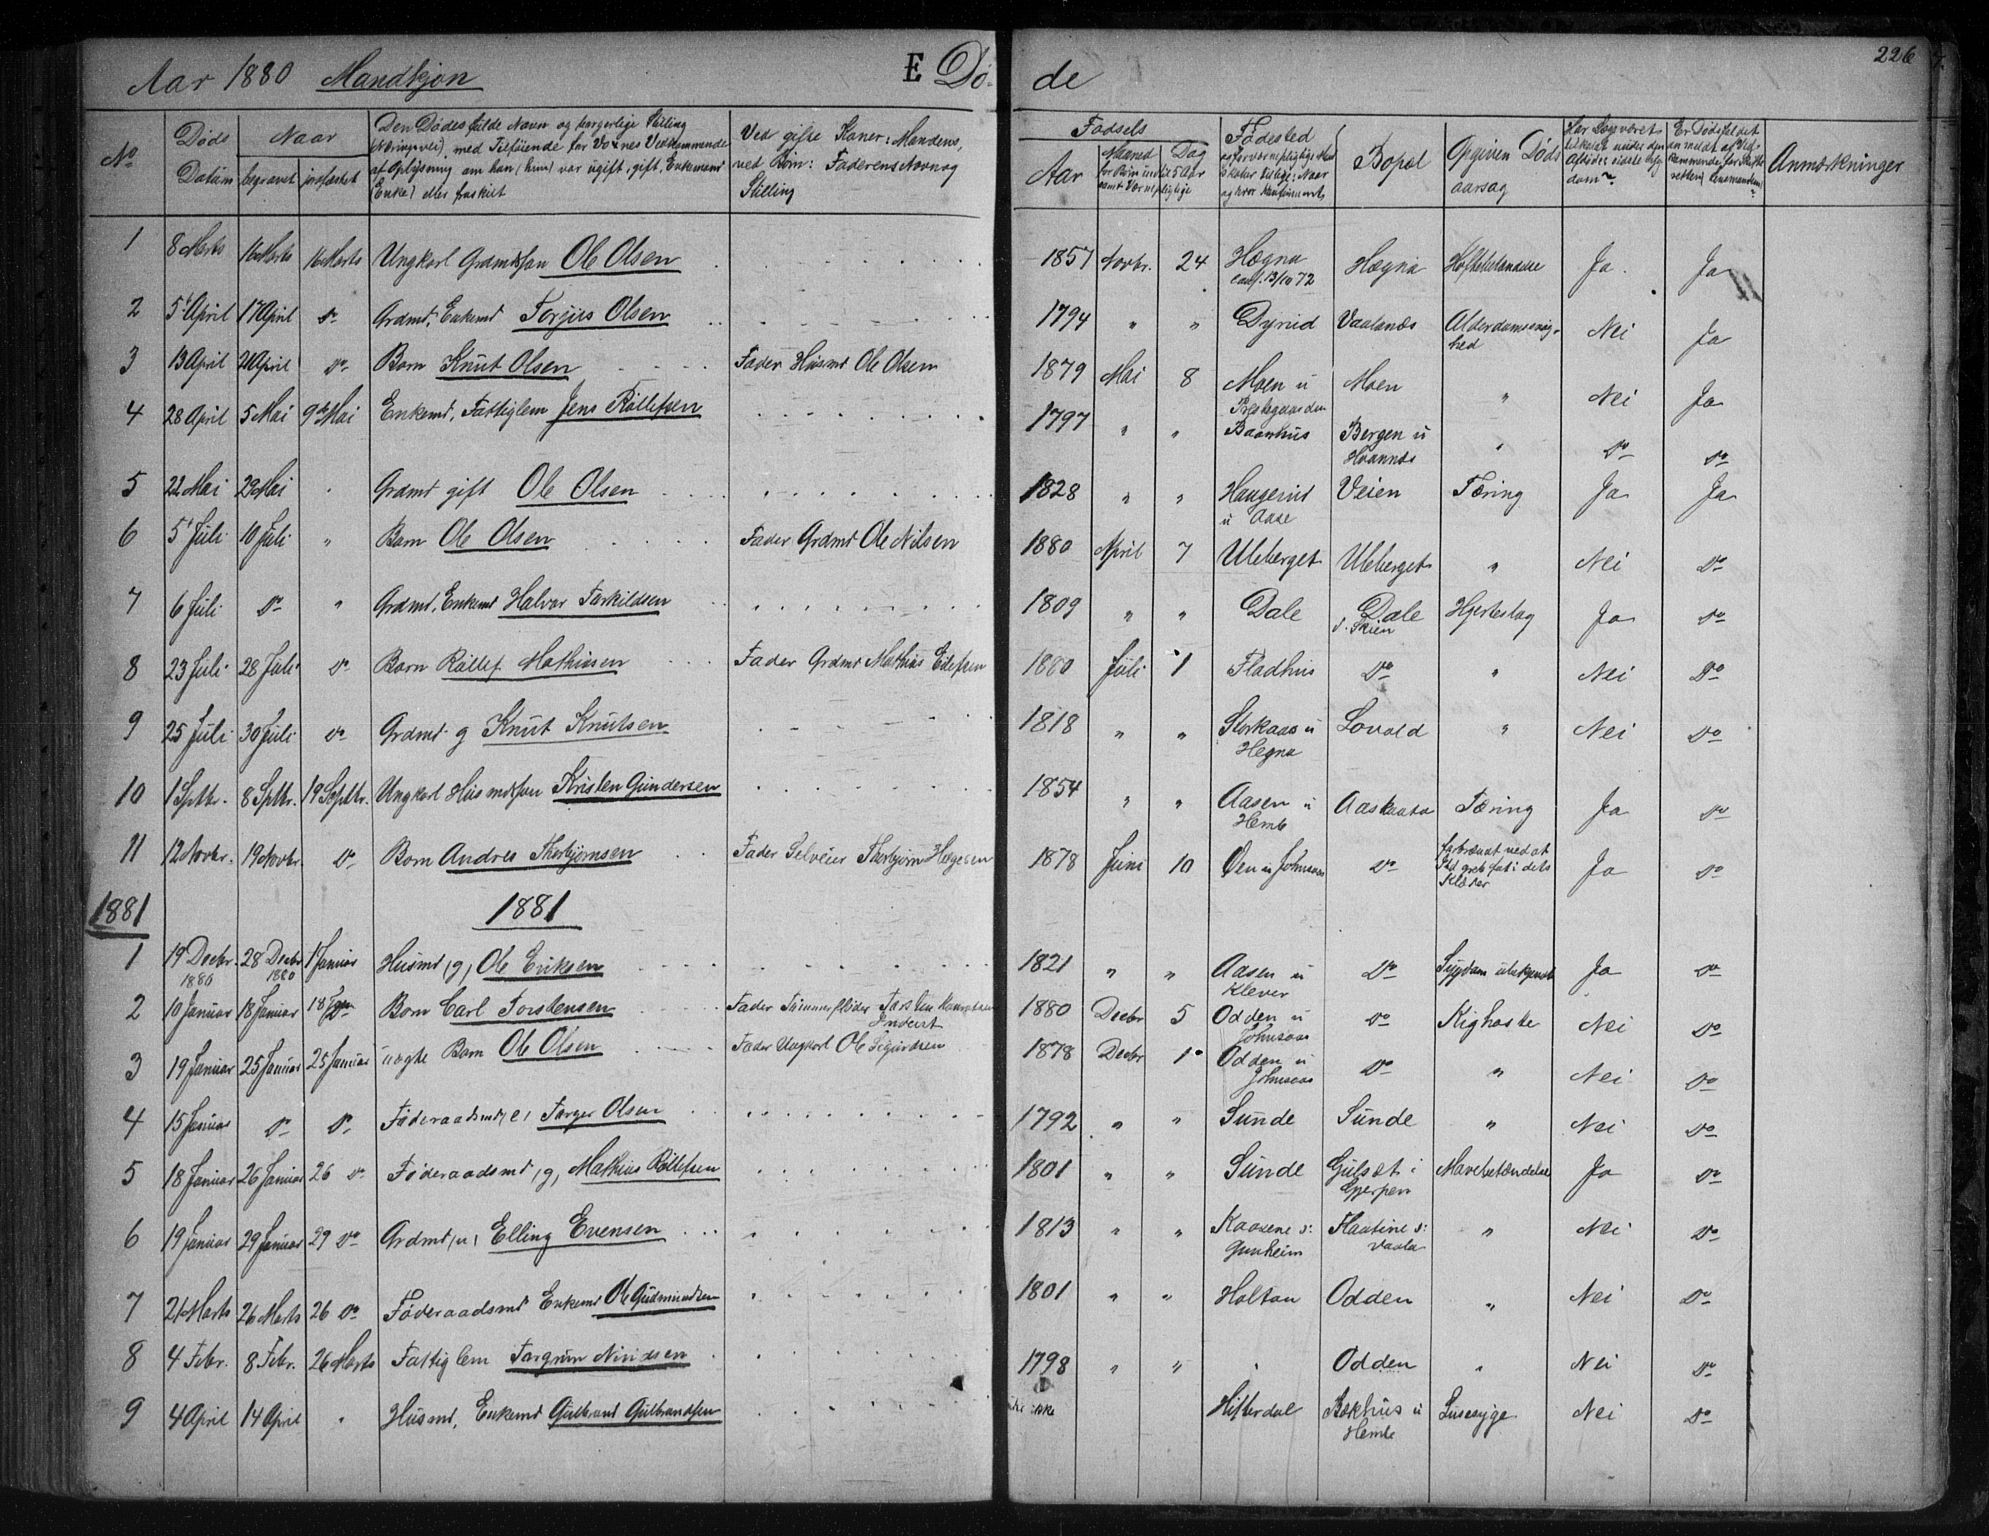 Aar 1880 Mandkjøn E. Døde 226
No
Døds Datum
Naar begravet jordfæstet
Den Dødes fulde Navn og borgerlige Stilling (Næringsvei) med Tilføiende for Voxnes Vedkommende af Oplysning om han (hun) var ugift, gift, Enkemand (Enke) eller fraskilt
Ved gifte Koner: Mandens, ved Børn: Faderens Navn og Stilling
Fødsels Aar
Maaned Dag for Børn under 5 Aar samt Værnepligtige
Fødested
Bopæl
Opgiven Dødsaarsag
Anmærkninger
1 8 Marts 16 Marts 16 Marts Ungkarl Grdmdsøn Ole Olsen 1857 Novbr. 24 Hægna conf. 13/10 72 Hægna Hoftebetændelse Ja Ja
2 5 April 17 April do Grdmd, Enkemd Torjus Olsen 1794 " " Dyrud Vaalanæs Alderdomssvaghed Nei Ja
3 13 April 21 April do Barn Knut Olsen Fader Husmd Ole Olsen 1879 Mai 8 Moen u Prestegaarden Moen " Nei Ja
4 28 April 5 Mai 9de Mai Enkemd, Fattiglem Jens Rollefsen 1797 " " Baarhus Bergen u Hvannæs " do do
5 22 Mai 29 Mai " Grdmd gift Ole Olsen 1828 " " Haugerud u Aase Veien Tæring Ja Ja
6 5 Juli 10 Juli " Barn Ole Olsen Fader Grdmd Ole Nilsen 1880 April 7 Uleberget Uleberget " Nei do
7 6 Juli do " Grdmd, Enkemd Halvor Tarkildsen 1809 " " Dale Dale d. Skien Hjerteslag Ja do
8 23 Juli 28 Juli do Barn Rollef Mathisen Fader Grdmd Mathias Edefsen 1880 Juli 1 Fladhus do " Nei do
9 25 Juli 30 Juli do Grdmd g Knut Knutsen 1818 " " Storkaas u Hegna Lovald " Nei do
10 1 Sptbr. 8 Sptbr. 19 Septbr. Ungkarl Husmdsøn Kristen Gundersen 1854 " " Aasen u Hemb Aaskaasa Tæring Ja do
11 12 Novbr. 19 Novbr. do Barn Andres Thorbjørnsen Fader Selveier Thorbjørn Hægesen 1878 Juni 10 Øen u Johnsaas do forbrændt ved at Ild greb fat i dets Klæder Ja do
1881 1881
1 19 Decbr. 1880 28 Decbr 1880 1 Januar Husmd (g) Ole Eriksen 1821 " " Aasen u Klever do Sygdom ubekjendt Ja do
2 10 Januar 18 Januar 18 do Barn Carl Torstensen Fader 1880 Decbr 5 Odden u Johnsaas do Kighoste Nei do
3 19 Januar 25 Januar 25 Januar uægte Barn Ole Olsen Fader Ungkarl Ole Sigurdsen 1878 Decbr 1 Odden u Johnsaas do " Nei do
4 15 Januar do do Føderaadsmd, e, Torger Olsen 1792 " " Sunde Sunde " Nei do
5 18 Januar 26 Januar 26 do Føderaadsmd (g) Mathias Rollefsen 1801 " " Sunde Gulset i Gjerpen Mavebetændelse Ja do
6 19 Januar 29 Januar 29 do Grdmd (u) Elling Evensen 1813 " " Kaasene s: Gunheim Flaatine s: Vaala " Nei do
7 21 Marts 26 Marts 26 do Føderaadsmd Enkemd Ole Gudmundsen 1801 " " Holtan Odden " Nei do
8 4 Febr. 8 Febr. 26 Marts Fattiglem Targrim Nirisen 1798 " " " Odden " Nei do
9 4 April 14 April " Husmd, Enkemd Gulbrand Gulbrandsen Hitterdal Bækhus u Hemb Lusesyge Nei do